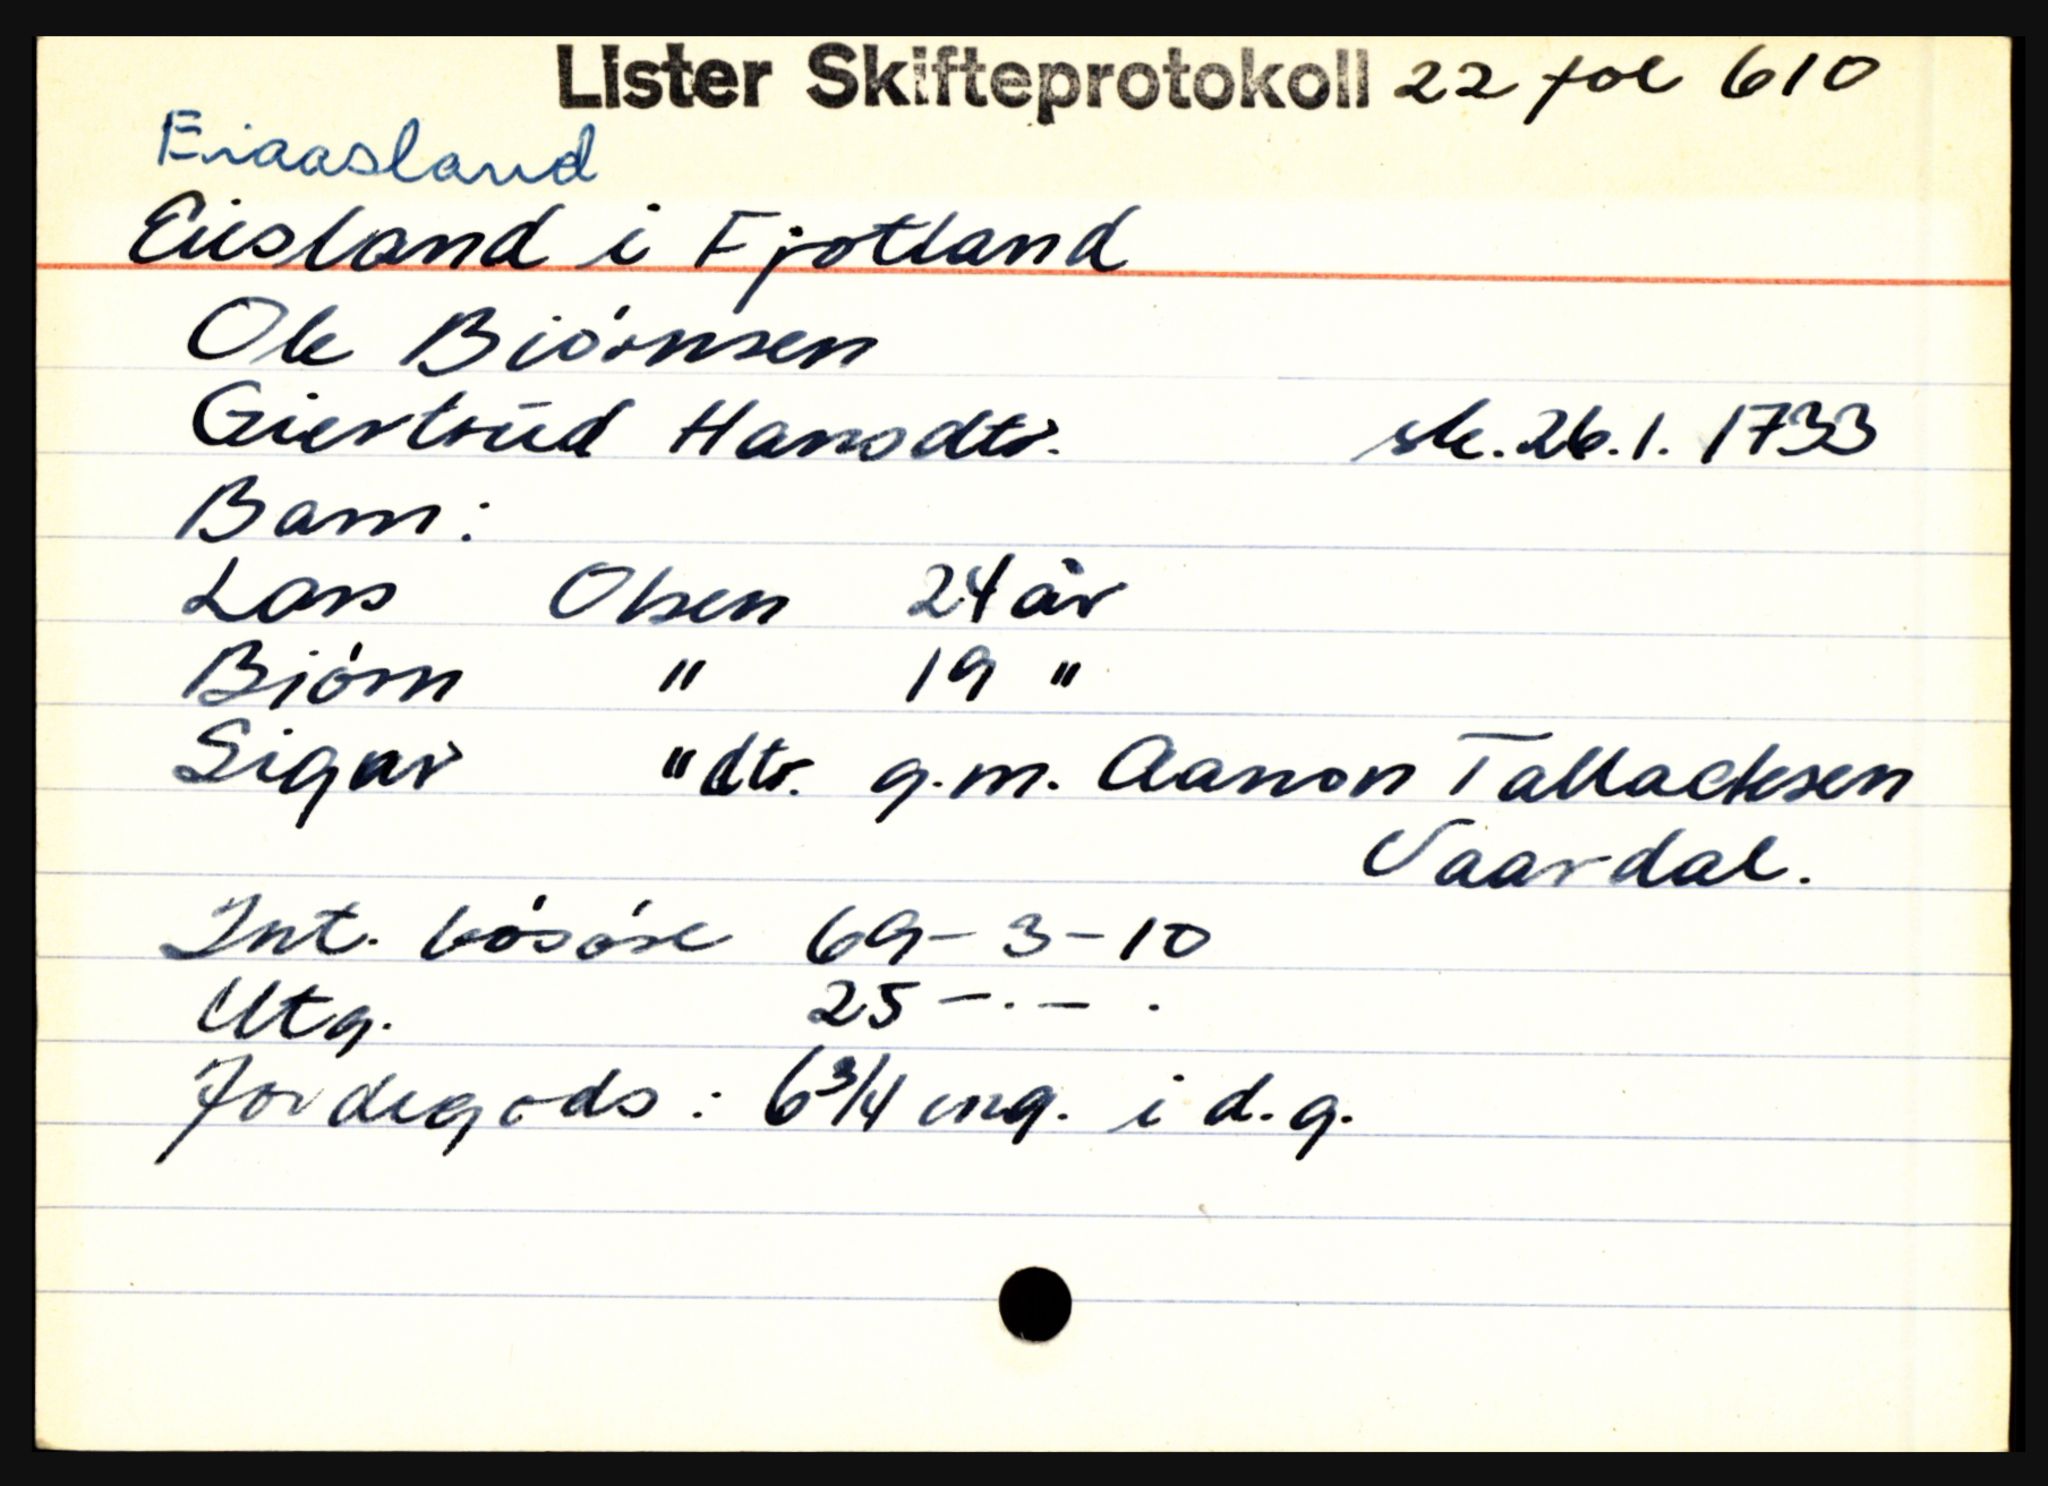 Lister Skifteprotokoll 22 fol 610
Eiaasland
Eiisland i Fjotland
Ole Biórnsen
Giertrūd Hansdtr. sk. 26.1. 1733
Barn:
Lars Olsen 24 år
Biórn " 19 "
Sigur "dtr. g.m. Aanon Tallachsen
Vaardal.
Int. bósóre 69-3-10
Utg. 25 - . - .
Jordegods: 6 3/4 eng. i d.g.